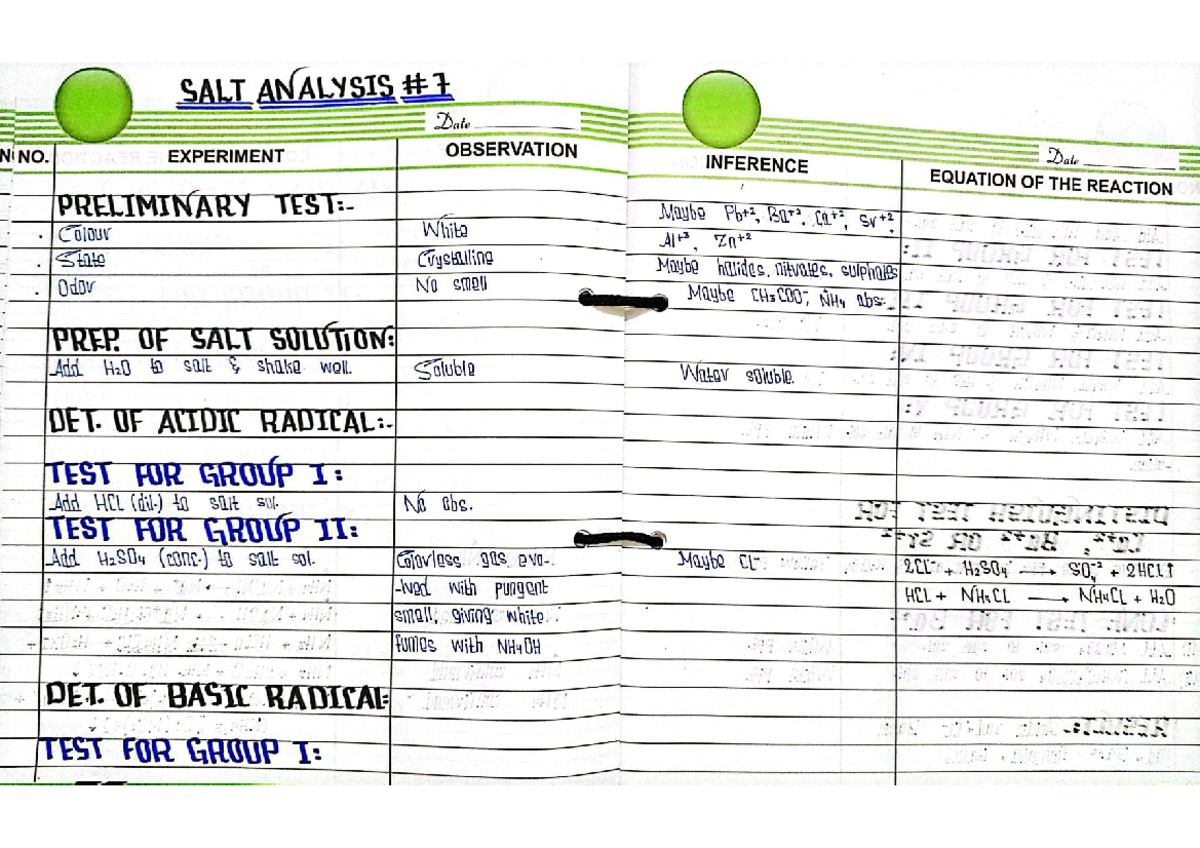 SALT ANALYSIS #7
Date
Date
NO. EXPERIMENT OBSERVATION INFERENCE EQUATION OF THE REACTION
PRELIMINARY TEST:-
Colour White Maybe Pb+², Ba+², Ca+², Sr+²,
Al+³, Zn+²
State Crystalline Maybe halides, nitrates, sulphates
Odor No smell Maybe CH₃COO⁻, NH₄ abs.
PREP. OF SALT SOLUTION:
Add H₂O to salt & shake well. Soluble Water soluble.
DET. OF ACIDIC RADICAL:-
TEST FOR GROUP I:
Add HCL (dil.) to salt sol. No obs.
TEST FOR GROUP II:
Add H₂SO₄ (conc.) to salt sol. Colorless gas evo- Maybe Cl⁻ 2Cl⁻ + H₂SO₄ → SO₄⁻² + 2HCl↑
-lved with pungent HCL + → NH₄CL + H₂O
smell, giving white
fumes with NH₄OH
DET. OF BASIC RADICAL:
TEST FOR GROUP I: